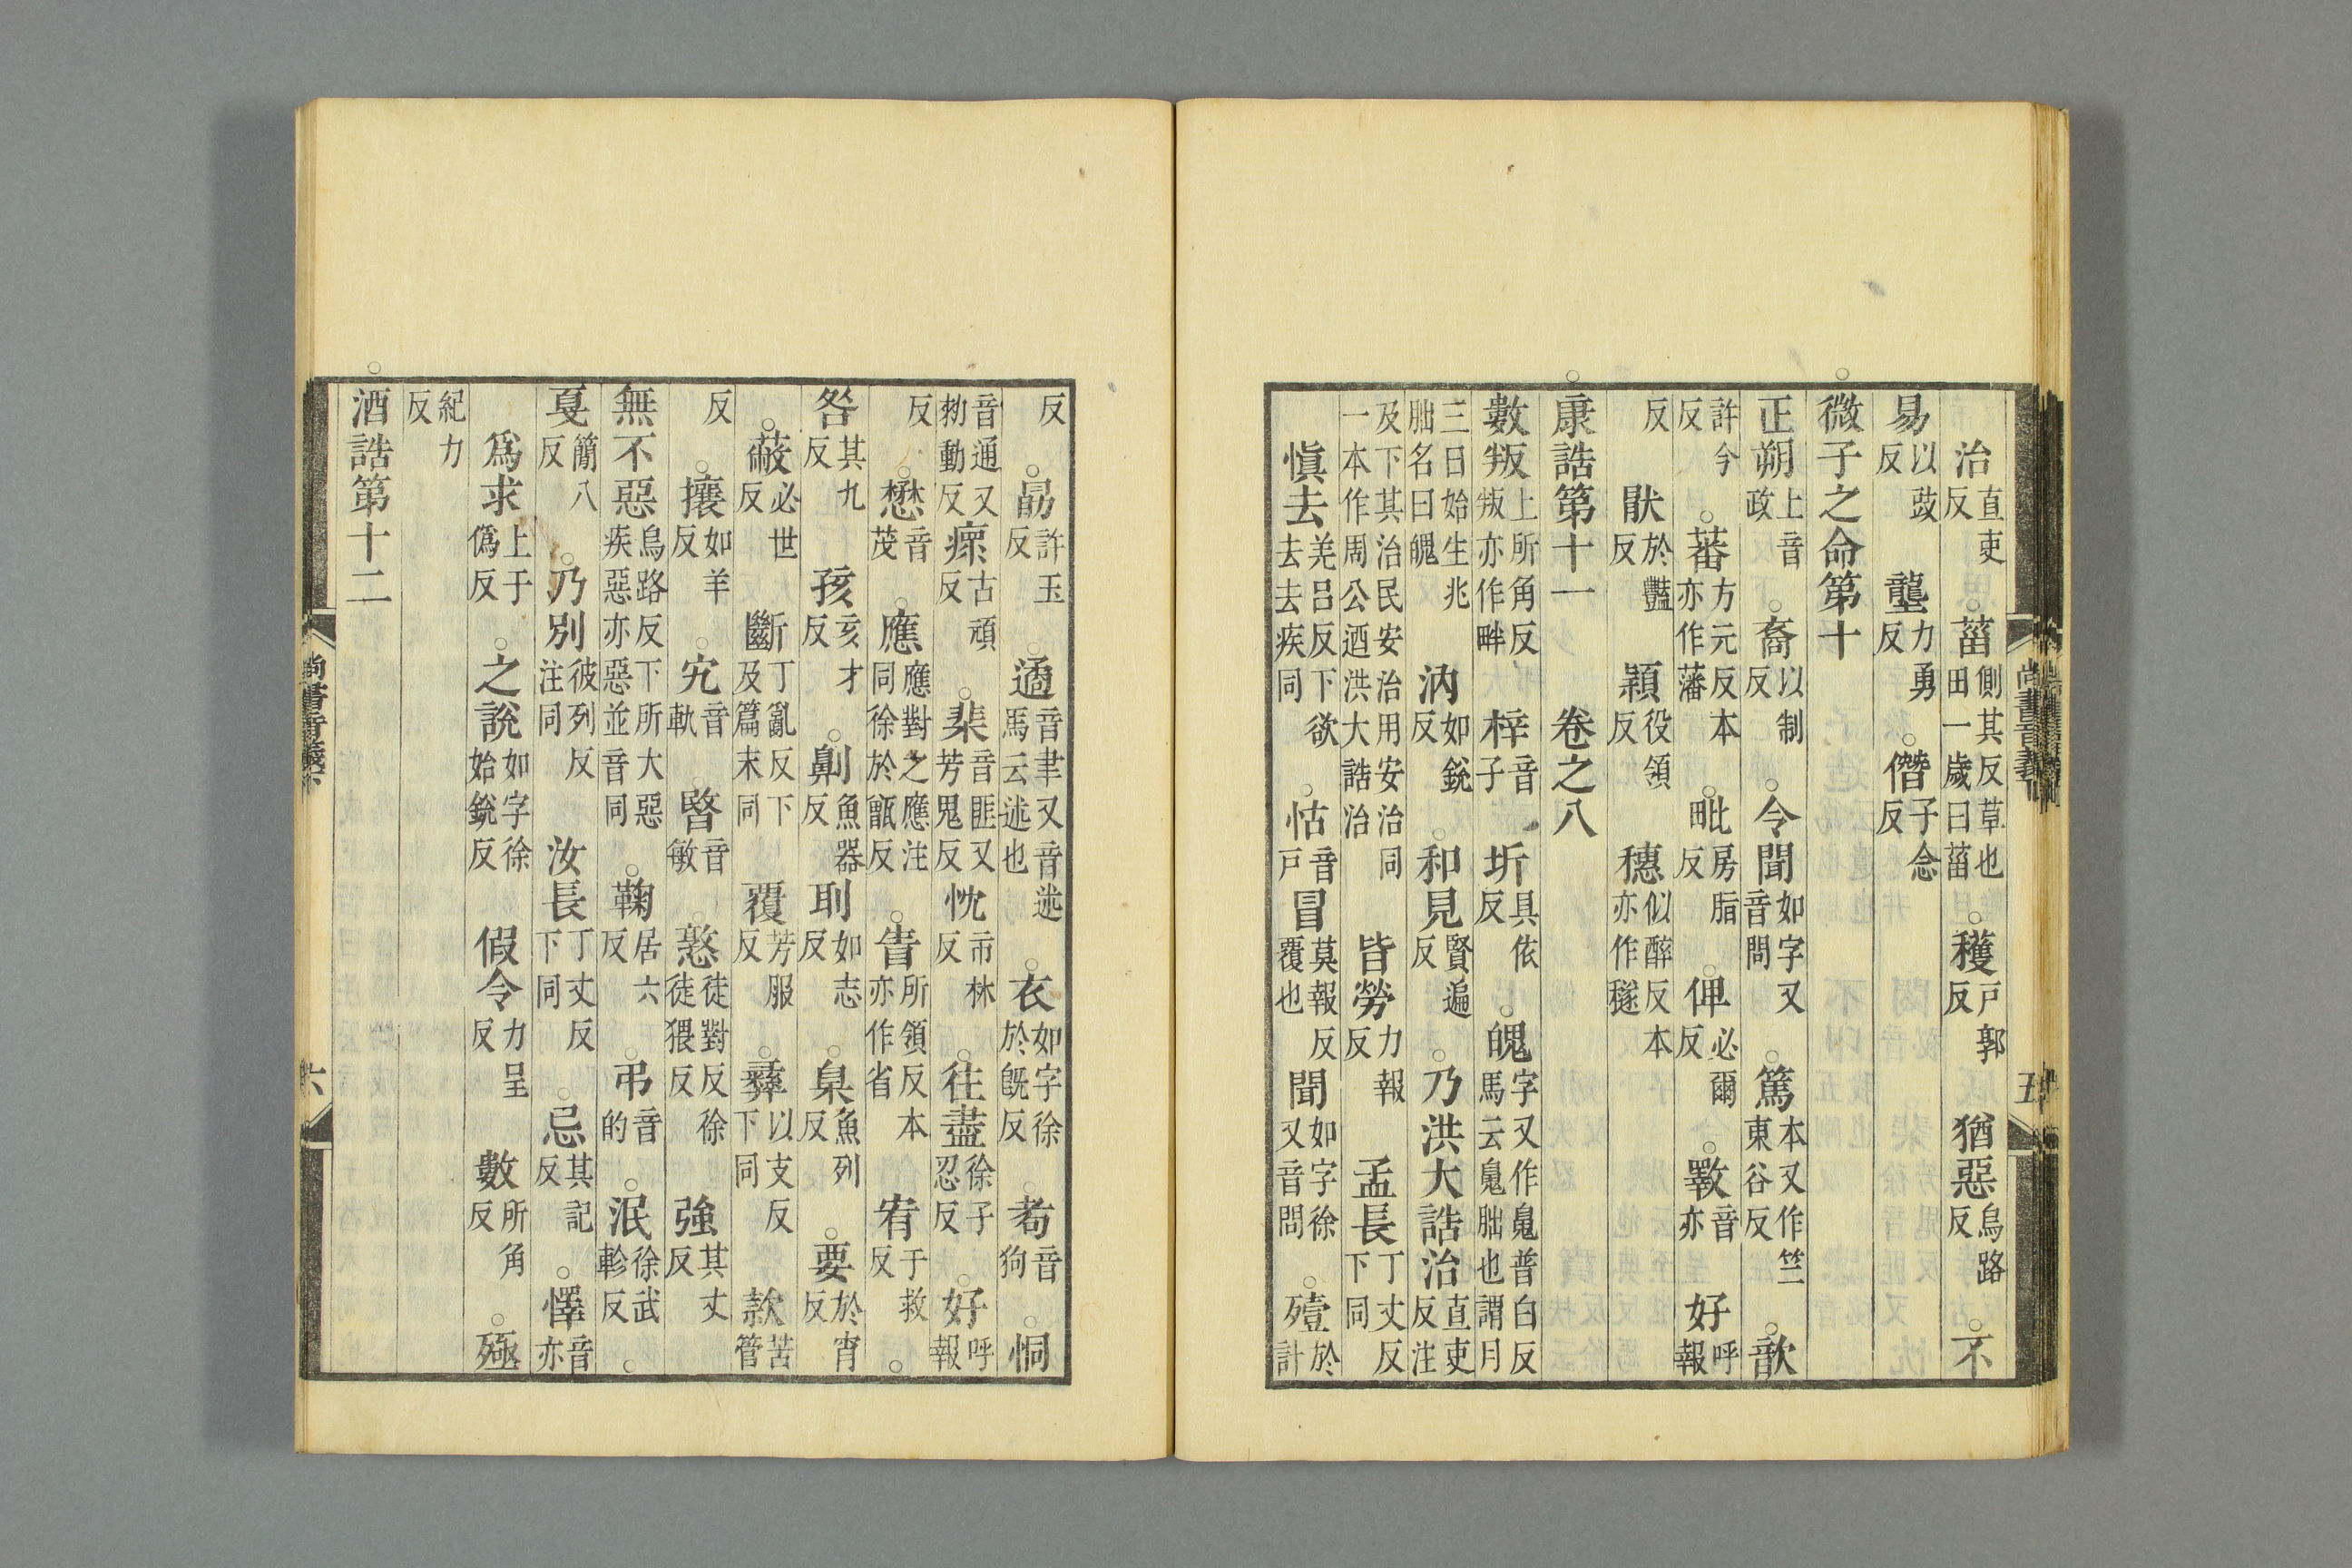 治直吏反○菑側其反草也田一歲曰菑○穫戶郭反猶惡烏路反○不
易以豉反壟力勇反○僭子念反
○微子之命第十
正朔上音政○裔以制反○令聞如字又音問○篤本又作竺東谷反○歆
許今反○蕃方元反本亦作藩○毗房脂反○俾必爾反○斁音亦好呼報
反猒於豔反穎役領反穗似醉反本亦作䆃
○康誥第十一卷之八
數叛上所角反叛亦作畔梓音子圻具依反○魄字又作䰟普白反馬云䰟朏也謂月
三日始生兆朏名曰魄汭如銳反○和見賢遍反○乃洪大誥治直吏反注
及下其治民安治用安治同一本作周公迺洪大誥治皆勞力報反孟長丁丈反下同
愼去羌呂反下欲去去疾同○怙音戶冒莫報反覆也聞如字徐又音問○殪於計
反○勗許玉反○遹音聿又音述馬云述也○衣如字徐於旣反○耇音狗○恫
音通又勑動反○瘝古頑反○棐音匪又芳鬼反忱市林反○往盡徐子忍反○好呼報
反○懋音茂○應應對之應注同徐於甑反○眚所領反本亦作省宥于救反○
咎其九反孩亥才反○劓魚器反刵如志反○臬魚列反○要於宵反
○蔽必世反斷丁亂反下及篇末同覆芳服反○彝以支反下同款苦管
反○攘如羊反○宄音軌○暋音敏○憝徒對反徐徒猥反強其丈反
無不惡烏路反下所大惡疾惡亦惡並音同○鞠居六反○弔音的○泯徐武軫反○
戛簡八反○乃別彼列反注同汝長丁丈反下同○忌其記反○懌音亦
爲求上于僞反○之說如字徐始銳反假令力呈反數所角反○殛
紀力反
○酒誥第十二
尚書音義下
五
尚書音義下
六